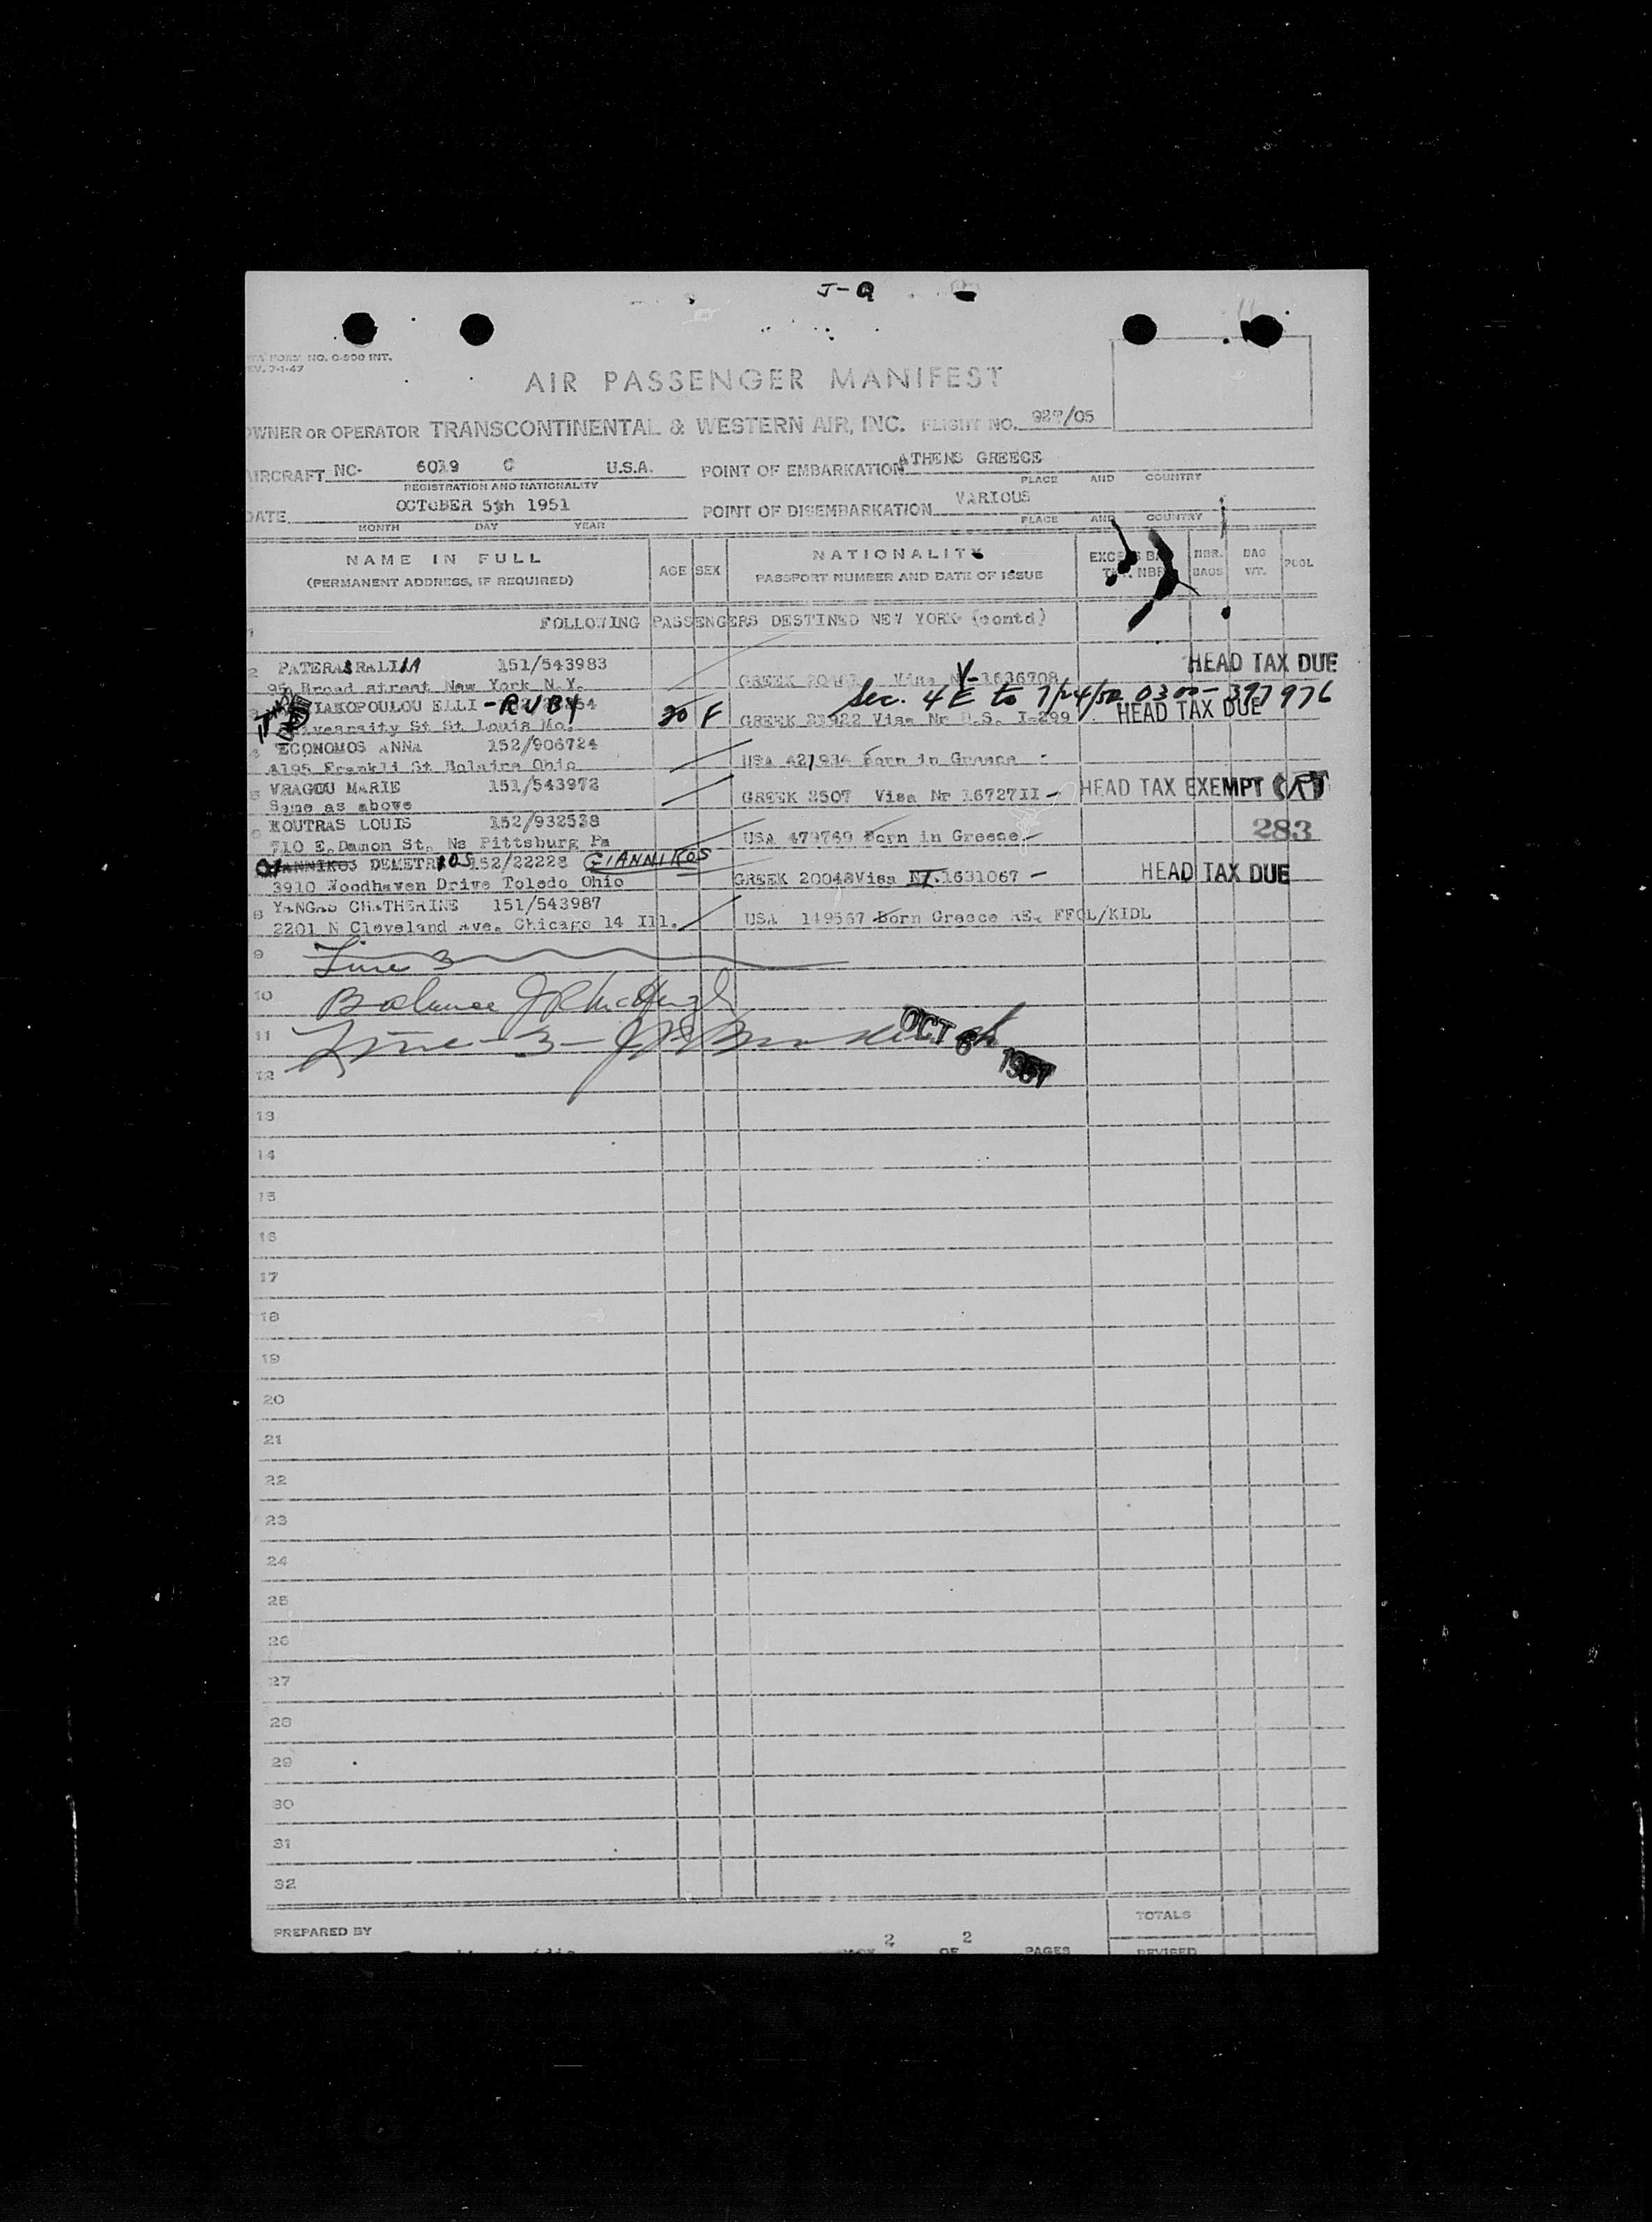 J-Q
NO. C-900 INT.
7-1-47
AIR PASSENGER MANIFEST
OWNER OR OPERATOR TRANSCONTINENTAL & WESTERN AIR, INC. FLIGHT NO. 927/05
AIRCRAFT NC- 6019 C U.S.A. POINT OF EMBARKATION ATHENS GREECE
REGISTRATION AND NATIONALITY PLACE AND COUNTRY
DATE OCTOBER 5th 1951 POINT OF DISEMBARKATION VARIOUS
MONTH DAY YEAR PLACE AND COUNTRY
NAME IN FULL AGE SEX NATIONALITY EXCESS NBR. BAG POOL
(PERMANENT ADDRESS, IF REQUIRED) PASSPORT NUMBER AND DATE OF ISSUE NBR BAGS WT.
1 FOLLOWING PASSENGERS DESTINED NEW YORK (contd)
2 151/543983 HEAD TAX DUE
Broad street New York N.Y. GREEK Visa V-1636708
Sec. 4E to 0300-397976
3 ELLI - RUBY 20 F GREEK 22922 Visa Nr I-299 HEAD TAX DUE
St St Louis Mo.
4 ECONOMOS ANNA 152/906724
4195 Frankli St Belaire Ohio USA 421934 Born in Greece -
5 VRAGOU MARIE 151/543972 HEAD TAX EXEMPT
Same as above GREEK 3507 Visa Nr 1672711 -
6 KOUTRAS LOUIS 152/932538 283
710 E. Damon St. Ns Pittsburg Pa USA 479769 Born in Greece -
DEMETRIOS 152/22228 GIANNIKOS HEAD TAX DUE
3910 Woodhaven Drive Toledo Ohio GREEK 20048 Visa 1631067 -
8 YANGAS CHATHERINE 151/543987
2201 N Cleveland Ave. Chicago 14 Ill. USA 149567 Born Greece FFOL/KIDL
9 Line 3
10 Balance
11 Line - 3 - OCT 6 1951
12
13
14
15
16
17
18
19
20
21
22
23
24
25
26
27
28
29
30
31
32
PREPARED BY TOTALS
2 OF 2 PAGES REVISED